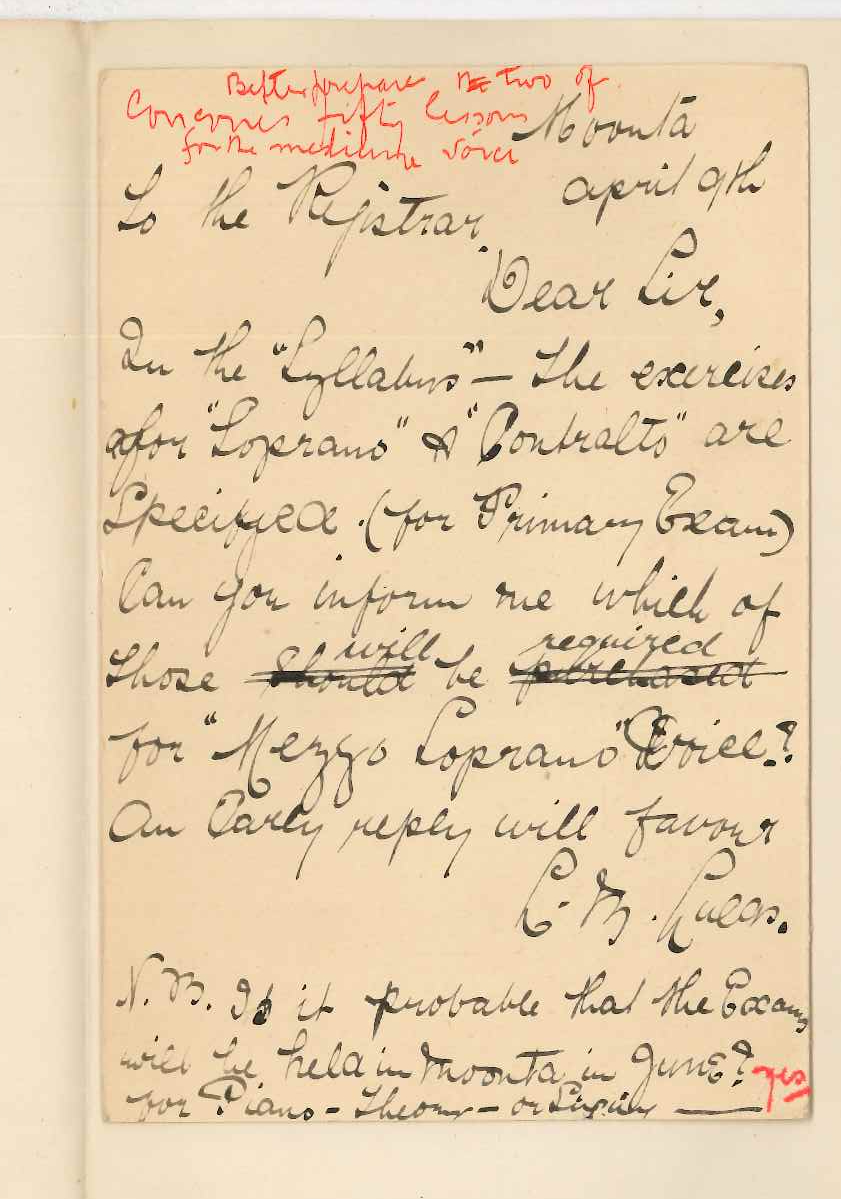 Better prepare two of
Concones fifty lessons
for the medium voice
Moonta
April 9th
To the Registrar.
Dear Sir,
In the "Syllabus" – the exercises
for "Soprano" & "Contralto" are
specified. (for Primary Exam)
Can you inform me which of
will required
those should be purchased
for "Mezzo Soprano" Voice?
An Early reply will favour
N.B. Is it probable that the Exams
will be held in Moonta in June? yes
for Piano – Theory – or Singing